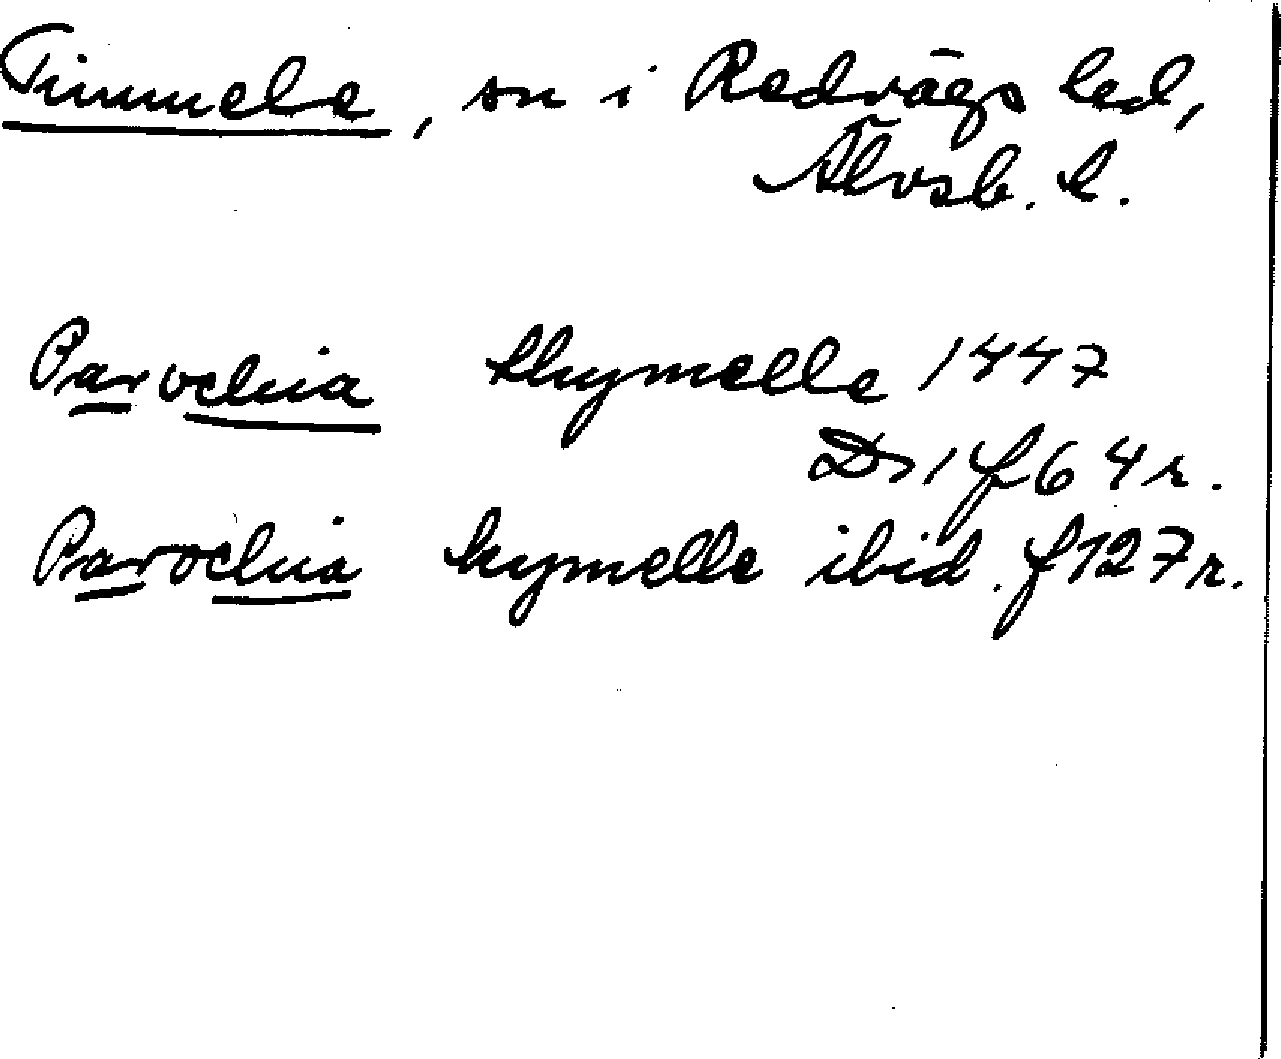 Timmele, sn i Redvägs hd,
Älvsb. l.
Parochia thymelle 1447
D 1 f 64 r.
Parochia tymelle ibid. f 127 r.